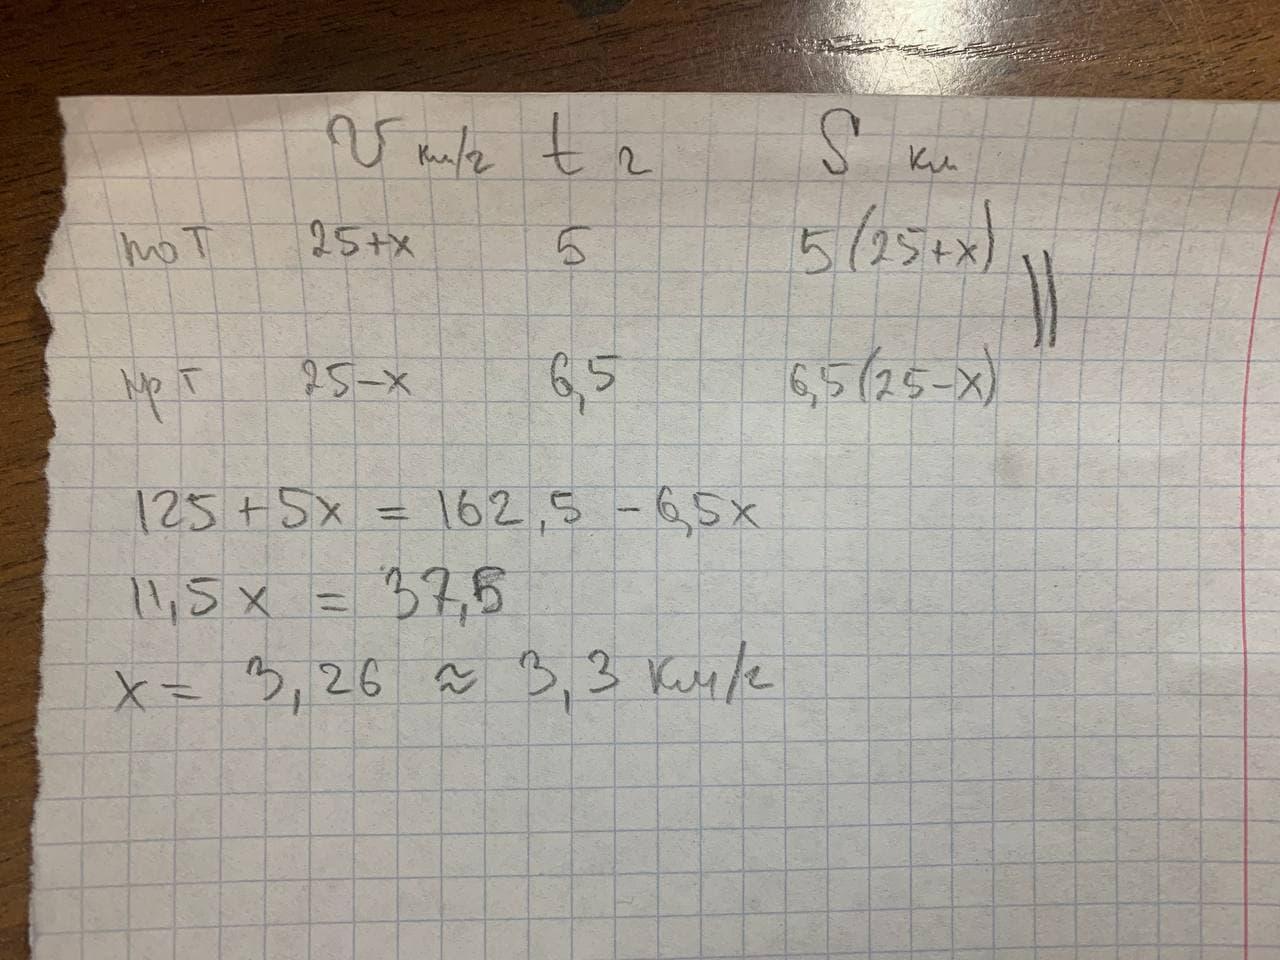 V км/г t г S км
по т 25+x 5 5(25+x)
пр т 25-x 6,5 6,5(25-x)
125+5x = 162,5 - 6,5x
11,5x = 37,5
x = 3,26 ≈ 3,3 км/г